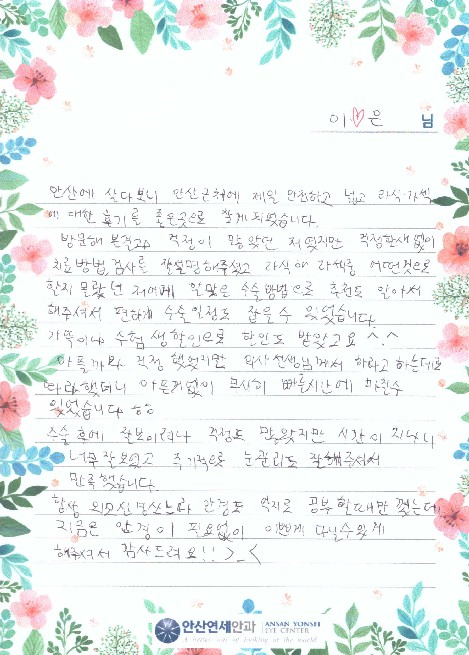 이♡은 님
안산에 살다보니 안산근처에 제일 안전하고 넓고 라식·라섹
에 대한 후기를 좋은곳으로 찾게되었습니다.
방문해 본결과 걱정이 많았던 저였지만 걱정할새 없이
치료방법, 검사를 잘설명해주셨고 라식에 라섹를 어떤것으로
할지 몰랐던 저에게 알맞은 수술방법으로 추천도 알아서
해주셔서 편하게 수술일정도 잡을수 있었습니다.
가족이나 수험생할인으로 할인도 받았고요 ^.^
아플까봐 걱정했었지만 의사선생님께서 하라고 하는데로
따라했더니 아픈거없이 무사히 빠른시간에 마칠수
있었습니다 ㅎㅎ
수술후에 잘보이려나 걱정도 많았지만 시간이 지나니
너무 잘보였고 주기적으로 눈관리도 잘해주셔서
만족했습니다.
항상 외모신경쓰느라 안경도 억지로 공부할때만 꼈는데
지금은 안경이 필요없이 이쁘게 다닐수있게
해주셔서 감사드려요!! >_<
안산연세안과 ANSAN YONSEI
EYE CENTER
A better way of looking at the world